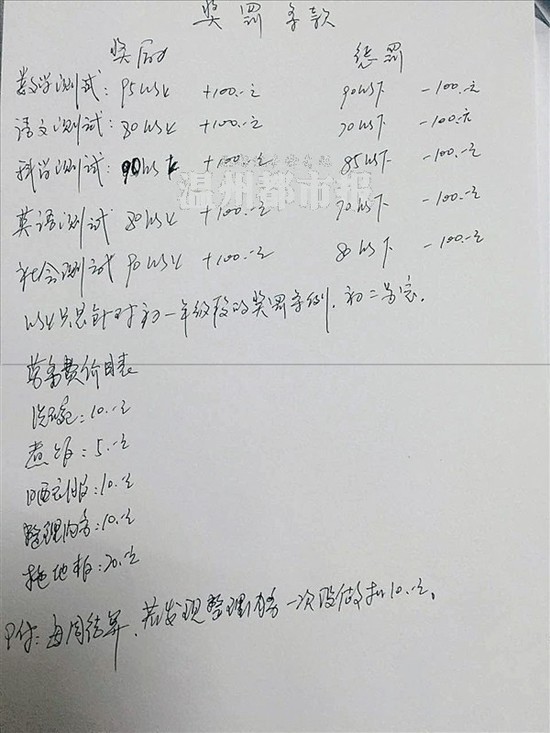 奖罚条款
奖励 惩罚
数学测试: 95以上 +100.-元 90以下 -100.-元
语文测试: 80以上 +100.-元 70以下 -100.-元
科学测试: 90以上 +100.-元 85以下 -100.-元
温州都市报
英语测试 80以上 +100.-元 70以下 -100.-元
社会测试 90以上 +100.-元 80以下 -100.-元
以上只是针对初一年级段的奖罚条例,初二另定.
劳务费价目表
洗碗: 10.-元
煮饭: 5.-元
晒衣服: 10.-元
整理内务: 10.-元
拖地板: 20.-元
附: 每周结算,若发现整理内务一次没做扣10.-元。